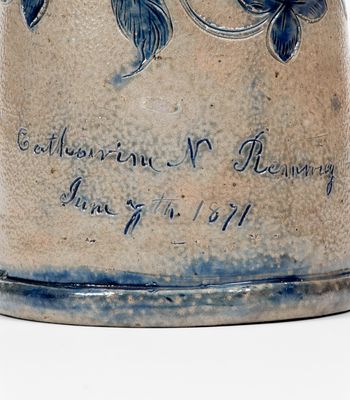 Catharine N Remmy
June 7th. 1871